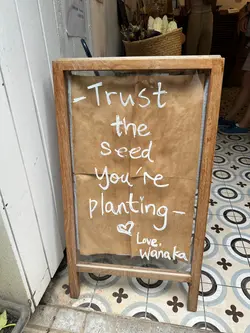 -Trust
the
seed
you're
planting-
Love,
Wanaka